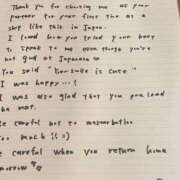 Thank you for choosing me as your
partner for your first time at a
shop like this in Japan.
I loved how you tried your best
to speak to me even though you're
not good at Japanese
You said "Kansube is cute"
I was happy~~!
I was also glad that you loved
Be careful not to masturbation
too much !! :)
e careful when you return home
morrow